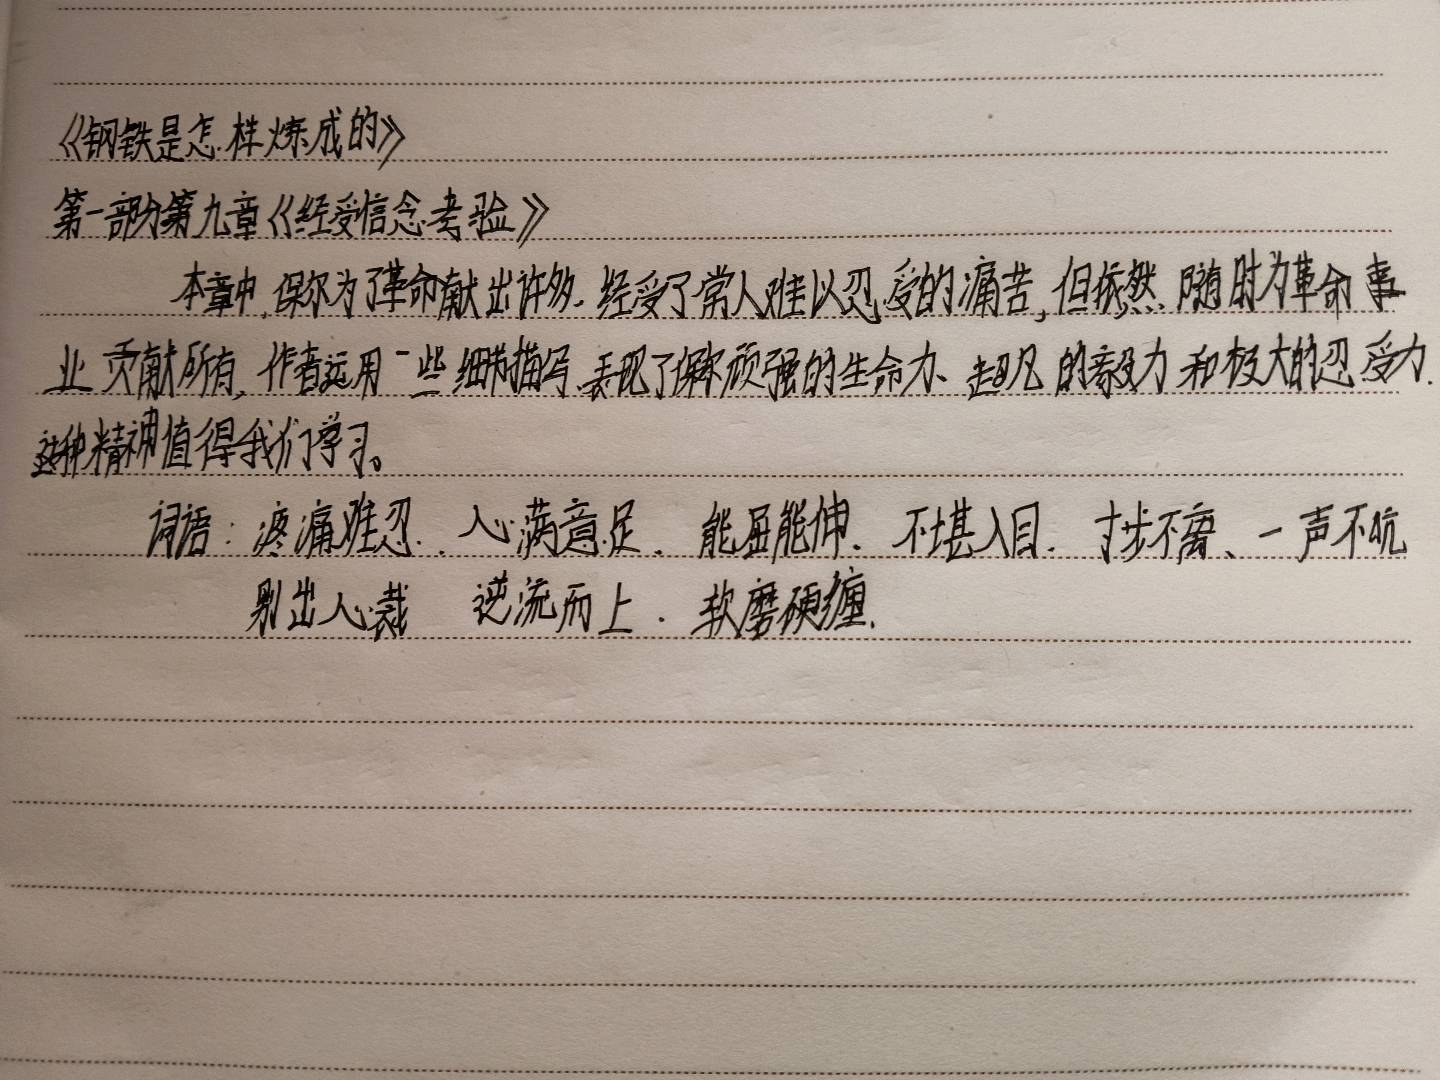 《钢铁是怎样炼成的》
第一部分第九章《经受信念考验》
本章中,保尔为了革命献出许多.经受了常人难以忍受的痛苦,但依然.随时为革命事
业贡献所有,作者运用一些细节描写.表现了保尔顽强的生命力、超凡的毅力和极大的忍受力.
这种精神值得我们学习。
词语:疼痛难忍.、心满意足、能屈能伸、不堪入目.寸步不离、一声不吭
别出心裁 逆流而上.软磨硬缠.